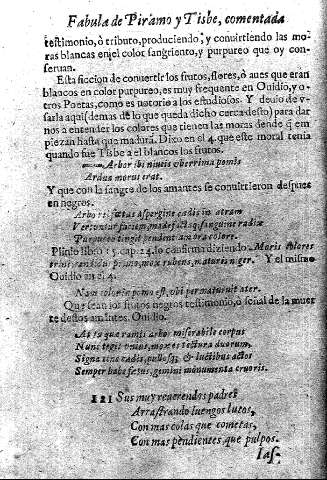 Fabula de Piramo y Tisbe, comentada
testimonio, ò tributo, produciendo, y conuirtiendo las mo-
ras blancas en el color sangriento, y purpureo que oy con-
seruan.
Esta ficcion de conuertir los frutos, flores, ò aues que eran
blancos en color purpureo, es muy frequente en Ouidio, y o-
tros Poetas, como es notorio a los estudiosos. Y deuio de v-
sarla aqui (demas de lo que queda dicho cerca desto) para dar-
nos a entender los colores que tienen las moras desde q̃ em-
piezan hasta que madurã. Dixo en el 4. que este moral tenia
quando fue Tisbe a el blancos los frutos.
Arbor ibi niueis vberrima pomis
Ardua morus erat.
Y que con la sangre de los amantes se conuirtieron despues
en negros.
Arborei fœtus aspergine cædis in atram
Vertuntur faciem, madefactaq; sanguine radix
Purpureo tingit pendentia mora colore.
Plinio libro 15. cap. 24. lo confirma diziendo. Moris colores
trini, candidus primo, mox rubens, maturis niger. Y el mismo
Ouidio en el 4.
Nam color in pomo est, vbi permaturuit ater.
Que sean los frutos negros testimonio, ò señal de la muer-
te destos amantes. Ouidio.
At tu quæ ramis arbor miserabile corpus
Nunc tegis vnius, mox es tectura duorum,
Signa tene cædis, pullosq; & luctibus aptos
Semper habe fœtus, gemini monumenta cruoris.
121 Sus muy reuerendos padres
Arrastrando luengos lutos,
Con mas colas que cometas,
Con mas pendientes que pulpos.
Ias-